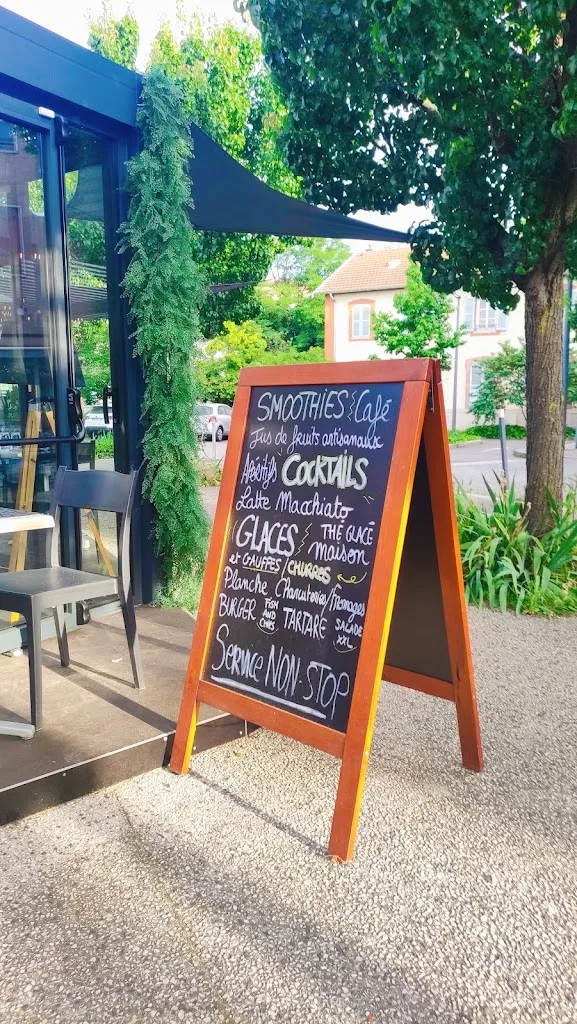 SMOOTHIES Café
Jus de fruits artisanaux
Apéritifs COCKTAILS
Latte Macchiato
GLACES THÉ GLACÉ
maison
et GAUFFES / CHURROS
Planche Charcuteries/fromages
BURGER FISH AND CHIPS TARTARE SALADE XXL
Service NON-STOP